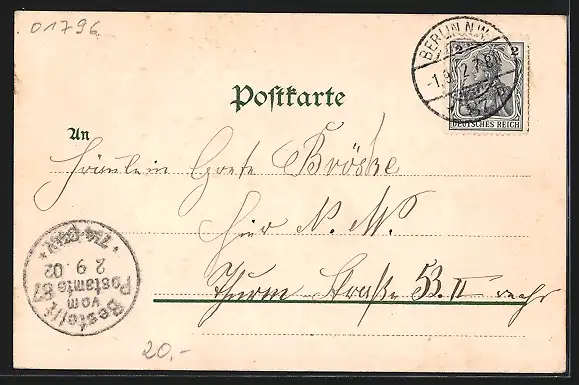 01796
BERLIN N.W.
-1.9.02.7-8N
2 2
DEUTSCHES REICH
Postkarte
An
Fräulein Grete Bröske
Hier N. W.
Thurm-Straße 53.II rechts
Bestellt
vom
Postamte 87
2 9.02
20,-